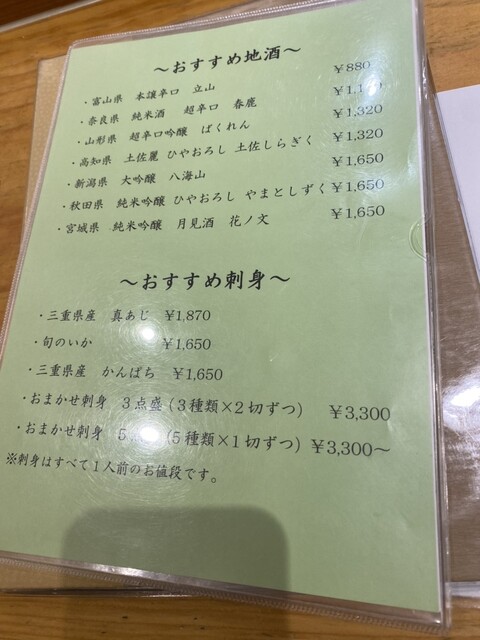 ～おすすめ地酒～
・富山県　本譲辛口　立山　￥880
・奈良県　純米酒　超辛口　春鹿
・山形県　超辛口吟醸　ばくれん　￥1,320
・高知県　土佐麗 ひやおろし 土佐しらぎく　￥1,320
・新潟県　大吟醸　八海山　￥1,650
・秋田県　純米吟醸 ひやおろし やまとしずく　￥1,650
・宮城県　純米吟醸　月見酒　花ノ文　￥1,650
～おすすめ刺身～
・三重県産　真あじ　￥1,870
・旬のいか　￥1,650
・三重県産　かんぱち　￥1,650
・おまかせ刺身　３点盛（３種類×２切ずつ）　￥3,300
・おまかせ刺身　５（５種類×１切ずつ）￥3,300～
※刺身はすべて１人前のお値段です。